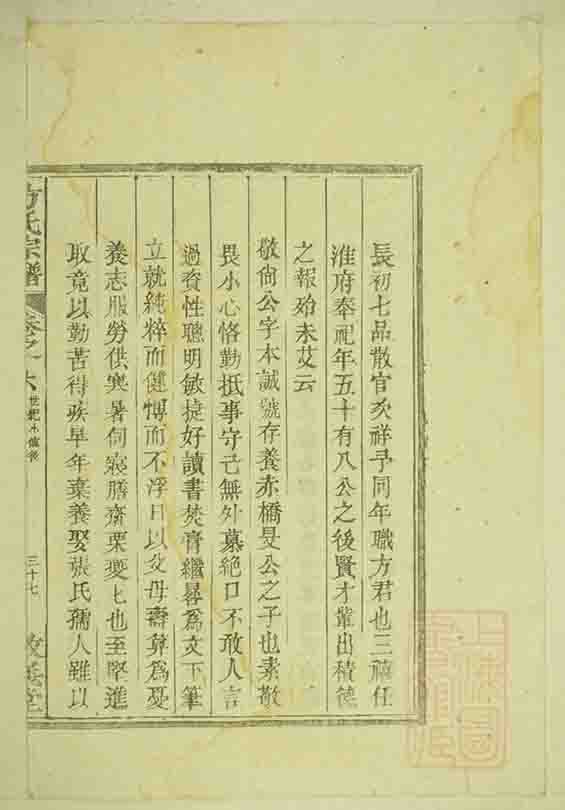 長初七品散官次祥予同年職方君也三禧任
淮府奉祀年五十有八公之後賢才輩出積德
之報殆未艾云
敬尙公字本誠號存養赤橋旻公之子也素敬
畏小心恪勤抵事守己無外慕絕口不敢人言
過資性聰明敏捷好讀書焚膏繼晷爲文下筆
立就純粹而健慱而不浮日以父母壽算爲憂
養志服勞供寒暑伺寢膳齋栗夔夔也至堅進
取竟以勤苦得疾早年棄養娶張氏孺人雖以
方氏宗譜
卷之八
三十七